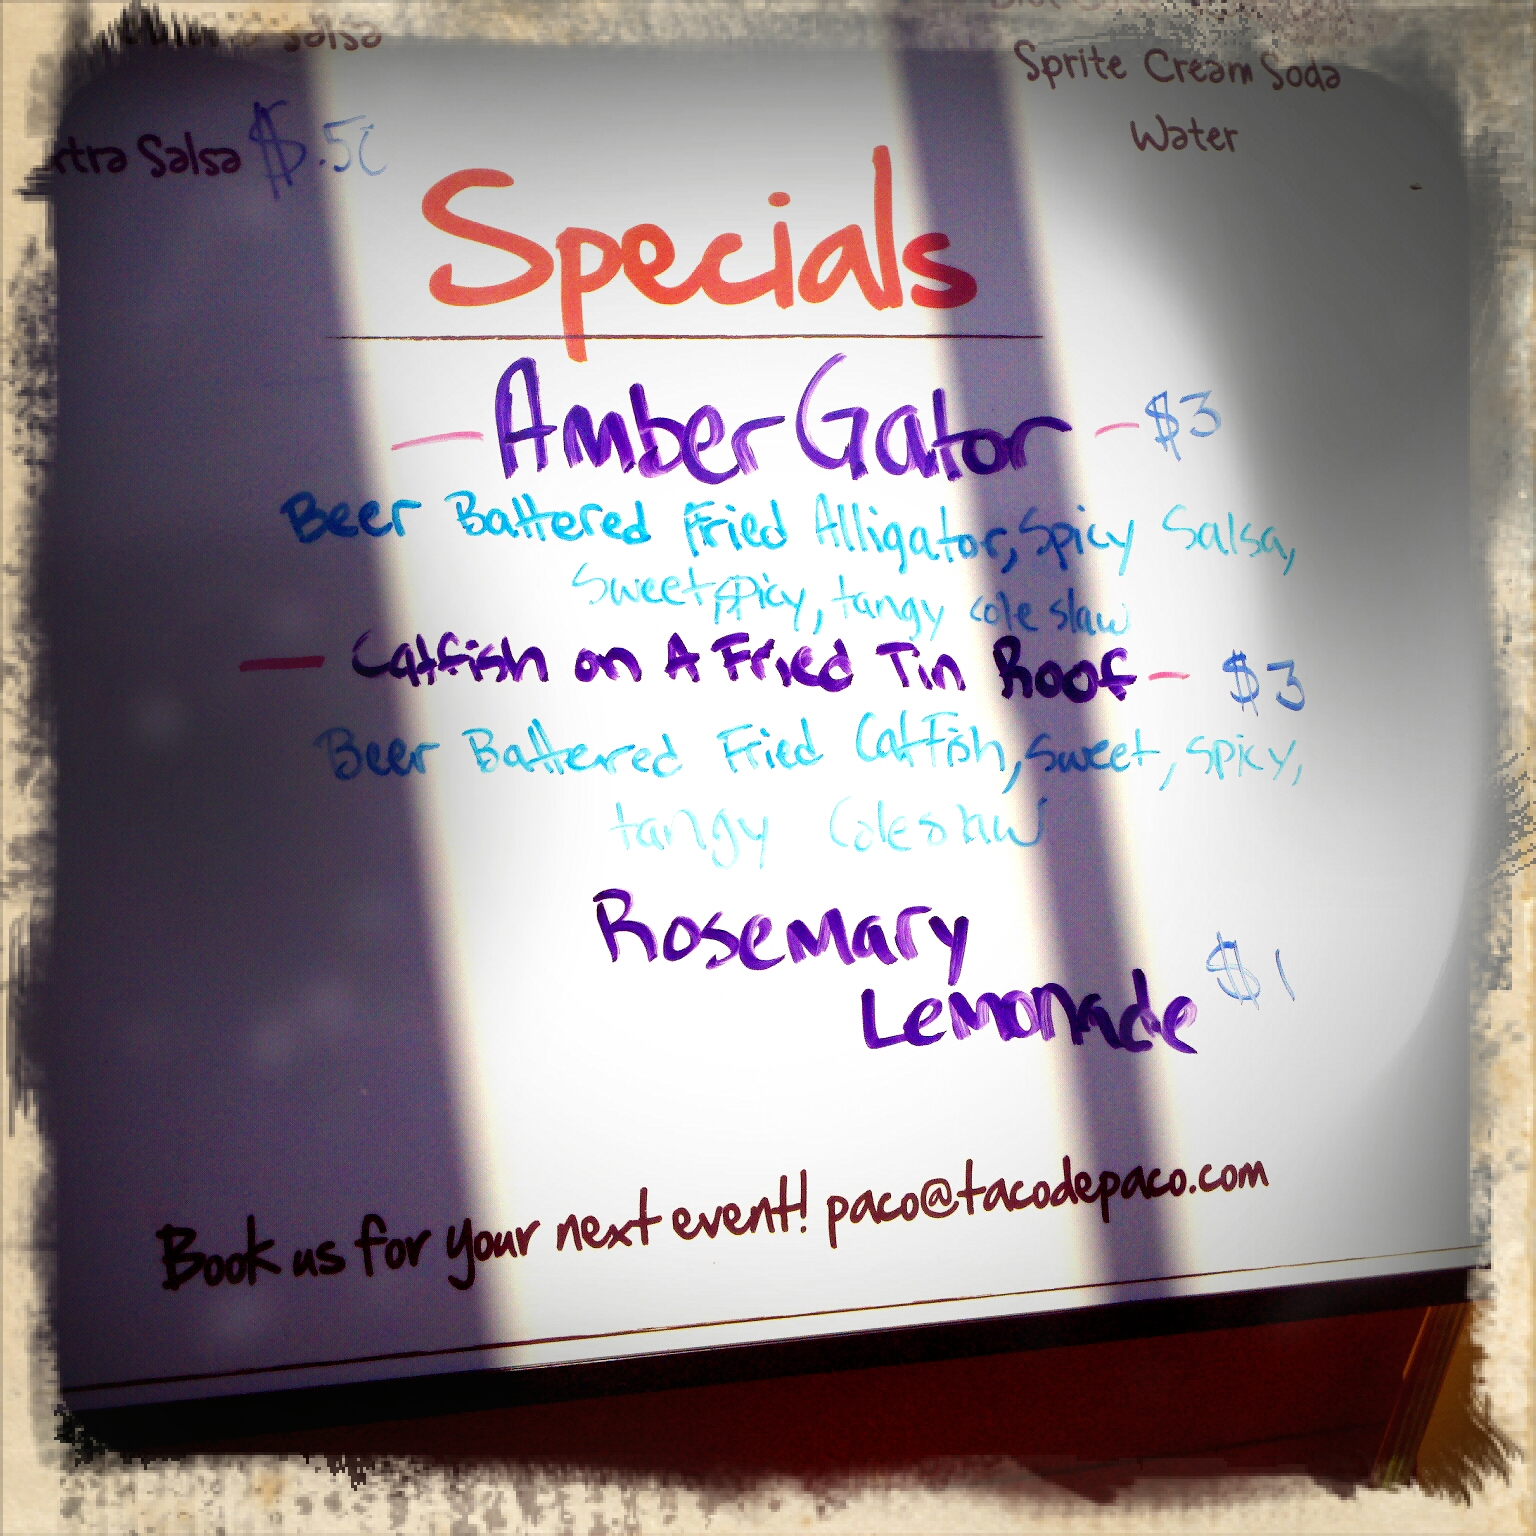 Salsa
Sprite Cream Soda
Water
xtra Salsa $.50
Specials
Amber Gator - $3
Beer Battered Fried Alligator, Spicy Salsa,
Sweet, spicy, tangy cole slaw
- Catfish on A Fried Tin Roof - $3
Beer Battered Fried Catfish, Sweet, Spicy,
tangy Coleslaw
Rosemary
Lemonade $1
Book us for your next event! paco@tacodepaco.com